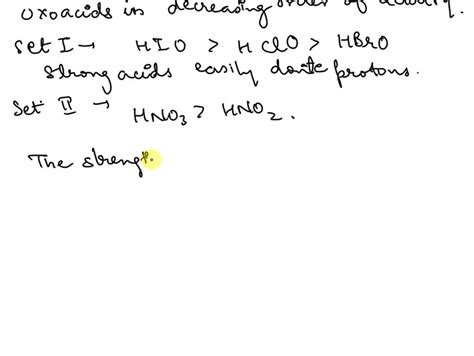 oxoacids in decreasing order of acidity.
Set I → HIO > HClO > HBrO
Strong acids easily donte protons.
Set II → HNO3 > HNO2.
The strengt